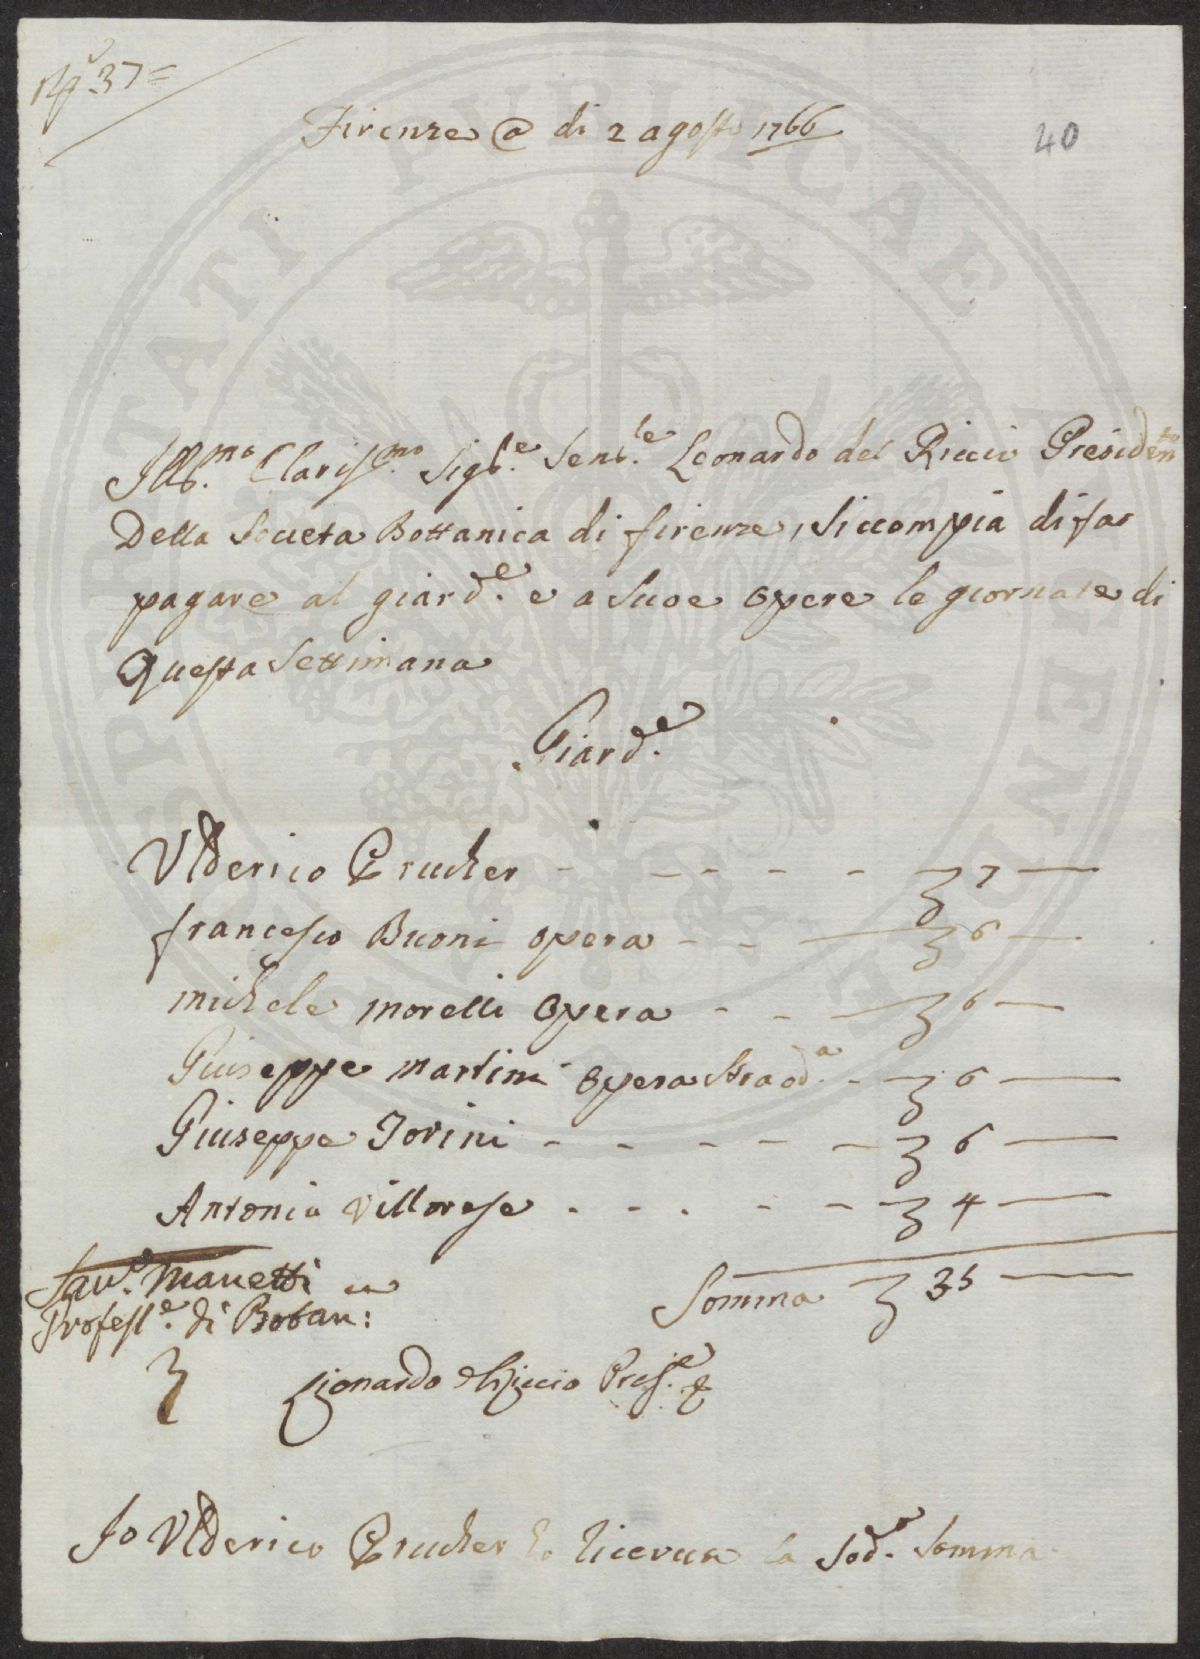 No. 37=
Firenze @ di 2 agosto 1766
40
Ill.mo Clariss.mo Sig.re Sen.re Leonardo del Riccio Presidente
Della Societa Bottanica di firenze, Si compia di far
pagare al giard.e e a Suoe opere le giornate di
Questa Settimana
Giard.e
Ulderico Prucher - - - - - £ 7 —
francesco Buoni opera - - — £ 6 —
michele morelli opera - - — £ 6 —
Giuseppe martini opera straod.a - — £ 6 —
Giuseppe Iorini - - - - - — £ 6 —
Antonio Villorese - - - - - — £ 4 —
Somma £ 35 —
Sav.o Manetti
Profess.e di Botan:
Lionardo del Riccio Pres.e
Io Ulderico Prucher ho ricevuta la Sod.a Somma
PROSPERITATI PUBLICAE AUGENDAE